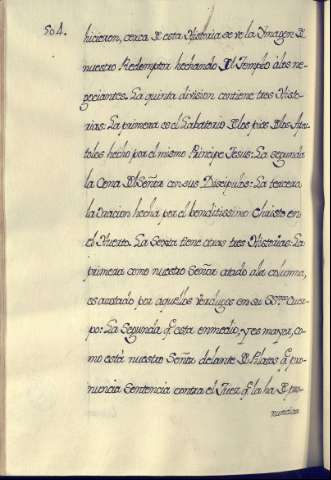 504.
hicieron, cerca de esta Historia se ve la Ymagen de
nuestro Redemptor hechando del Templo á los ne-
gociantes. La quinta division contiene tres Histo-
rias: La primera es el Labatorio de los pies de los Apos-
toles hecho por el mismo Principe Jesus: La segunda
la Cena del Señor con sus Discipulos: La tercera
la Oracion hecha por el benditissimo Christo en
el Huerto. La Sexta tiene otras tres Historias: La
primera como nuestro Señor atado a la columna,
es azotado por aquellos Verdugos en su SSmo Cuer-
po: La Segunda q.e esta enmedio, y es mayor, co-
mo está nuestro Señor delante de Pilatos q.e pro-
nuncia Sentencia contra el Juez q.e la ha de pro-
nunciar